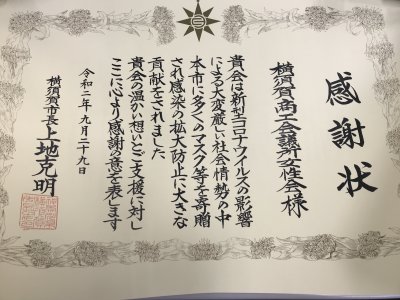 感謝状
横須賀商工会議所女性会様
貴会は新型コロナウイルスの影響
による大変厳しい社会情勢の中
本市に多くのマスク等を寄贈
され感染の拡大防止に大きな
貢献をされました
貴会の温かい想いとご支援に対し
ここに心より感謝の意を表します
令和二年九月二十九日
横須賀市長 上地克明